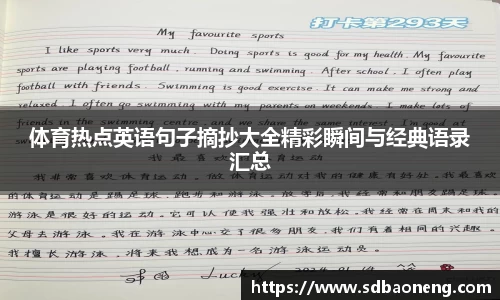 打卡第293天
My favourite sports
I like sports very much. Doing sports is good for my health. My favourite
sports are playing football, running and swimming. After school, I often play
football with friends. Swimming is good exercise. It can make me strong and
relaxed. I often go swimming with my parents on weekends. I make lots of
friends in the swimming centre, and we share the same interest.
体育热点英语句子摘抄大全精彩瞬间与经典语录
汇总
我非常喜欢体育运动。做运动对我的健康有好处。我最喜欢
的体育运动是踢足球、跑步和游泳。放学后,我经常和朋友踢足球。
游泳是很好的运动。它可以使我强壮和放松。我经常在周末和我的
父母去游泳。我在游泳中心交了很多朋友,我们有着相同的兴趣。
我擅长游泳,将来我想成为一名游泳运动员。
Lucky
https://www.sdbaoneng.com